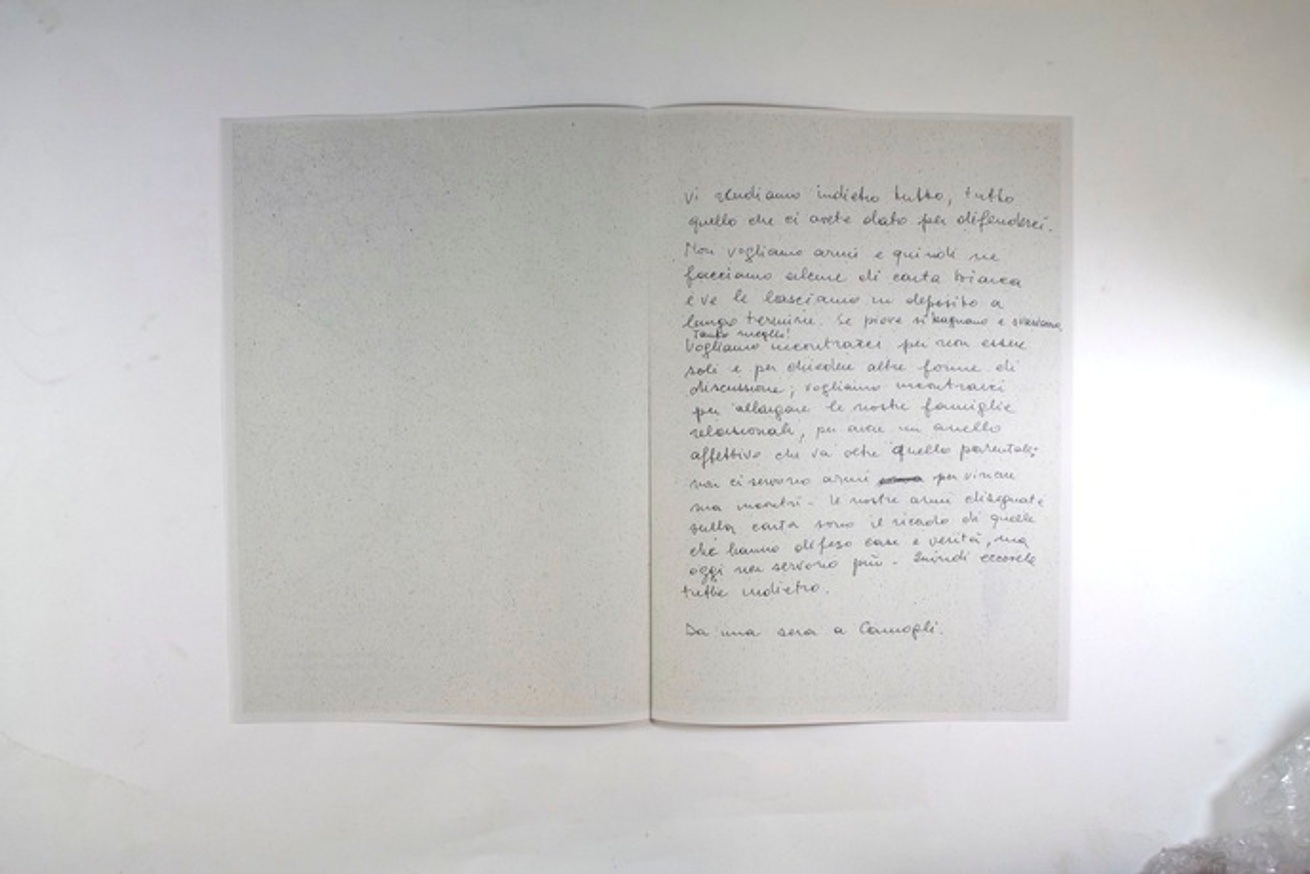 Vi rendiamo indietro tutto, tutto
quello che ci avete dato per difenderci.
Non vogliamo armi e quindi ne
facciamo alcune di carta bianca
e ve le lasciamo in deposito a
lungo termine. Se piove si bagnano e
Tanto meglio!
Vogliamo incontrarci per non essere
soli e per chiedere altre forme di
discussione; vogliamo incontrarci
per allargare le nostre famiglie
relazionali, per avere un anello
affettivo che va oltre quello parentale;
non ci servono armi per vincere
ma incontri - le nostre armi disegnate
sulla carta sono il ricordo di quelle
che hanno difeso case e verità, ma
oggi non servono più - Quindi eccovele
tutte indietro.
Da una sera a Camogli.